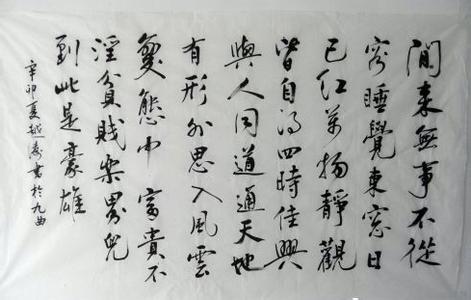 閒來無事不從
容睡覺東窗日
已紅萬物靜觀
皆自得四時佳興
與人同道通天地
有形外思入風雲
變態中富貴不
淫貧賤樂男兒
到此是豪雄
辛卯夏越濤书於九曲